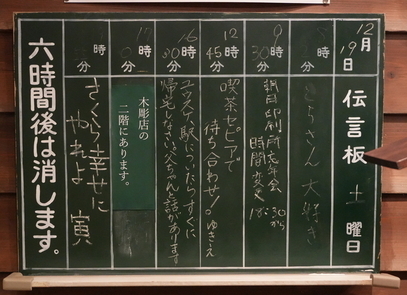 12月
19日
伝言板 土曜日
時 分
とうさん 大好き
9時30分
朝日印刷所忘年会
時間変更
18:30から
12時45分
喫茶セピアで
待ち合わせ!ゆきえ
16時30分
ユウスケ駅についたらすぐに
帰宅しなさい父ちゃんと話があります
17時0分
木彫店の
二階にあります。
時 分
さくら幸せに
やれよ 寅
六時間後は消します。